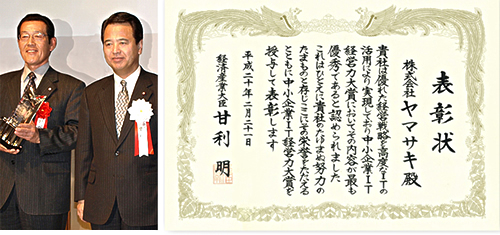 表彰状
株式会社 ヤマサキ 殿
貴社は優れた経営戦略を高度なITの
活用により実現しており中小企業IT
経営力大賞においてその内容が最も
優秀であると認められました
これはひとえに貴社のたゆまぬ努力の
たまものと存じここにその栄誉をたたえる
とともに中小企業IT経営力大賞を
授与して表彰します
平成二十年二月二十一日
経済産業大臣 甘利 明